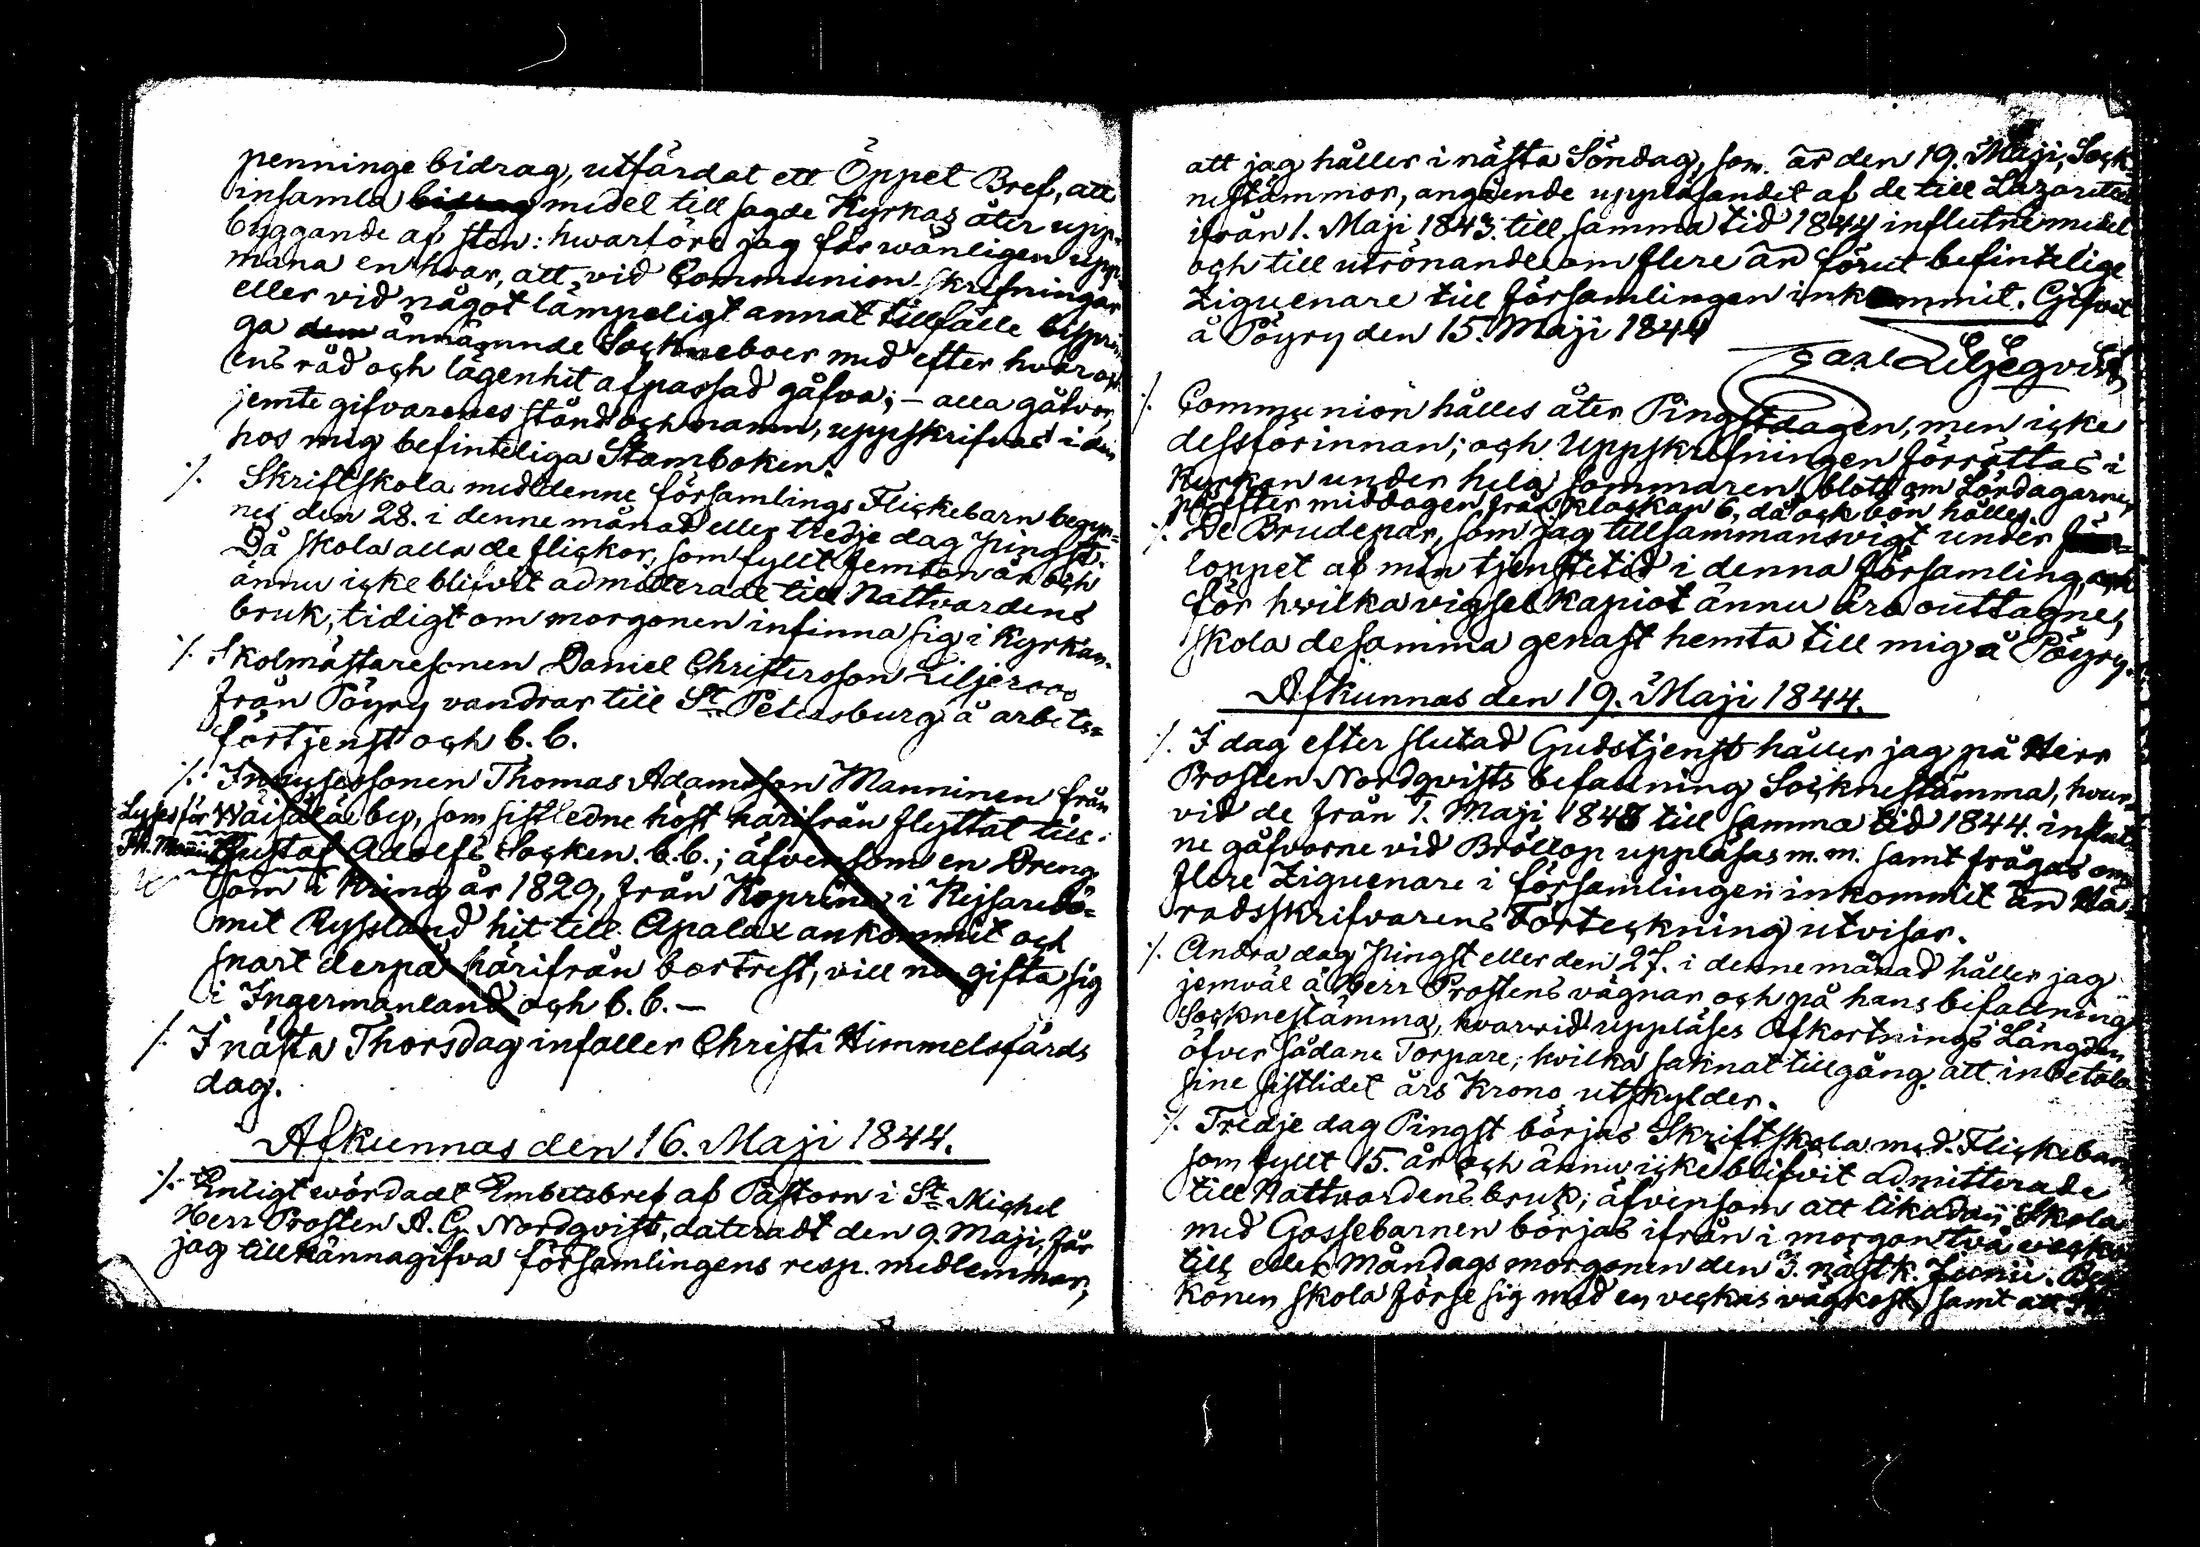 penninge bidrag, utfärdat ett Öppet Bref, att
insamla bidrag medel till sagde Kyrkas åter upp-
byggande af sten: hwarföre jag får wänligen upp-
mana en hvar, att vid Communion-skrifningar
eller vid något lämpeligt annat tillfälle
ga dem ännämnde Sockneboer med efter hvars och
ens råd och lägenhet afpassad gåfva; – alla gåfvor,
jemte gifvarenes stånd och namn, uppskrifvas i den
hos mig befinteliga Stamboken.
⁒ Skriftskola med denne församlings Flickebarn begyn-
nes den 28. i denne månad eller tredje dag Pingst.
Då skola alla de flickor, som fyllt femton år och
ännu icke blifvit admitterade till Nattvardens
bruk, tidigt om morgonen infinna sig i Kyrkan.
⁒ Skolmästaresonen Daniel Christersson Liljeroos
från Pöyry vandrar till St. Petersburg å arbets-
förtjenst och b. b.
⁒ Inhysessonen Thomas Adamsson Manninen från
Lyses för Wäisälä by, som sistledne höst härifrån flyttat till
Th. Mann. Gustaf Adolfs Socken. b. b.; äfvensom en Dreng
som i kring år 1829, från Koprina i Kejsaredö-
met Ryssland hit till Apalax ankommit och
snart derpå härifrån bortrest, vill nu gifta sig
i Ingermanland och b. b. –
⁒ I nästa Thorsdag infaller Christi Himmelsfärds
dag.
Afkunnas den 16. Maji 1844.
⁒ Enligt wördadt Embetsbref af Pastorn i St. Michel
Herr Prosten A. G. Nordqvist, dateradt den 9. Maji, får
jag tillkännagifva församlingens resp. medlemmar,
att jag håller i nästa Söndag, som är den 19. Maji, Sock-
nestämmor, angående uppläsandet af de till Lazarettet
ifrån 1. Maji 1843. till samma tid 1844 influtne medel
och till utrönande om flere än förut befintelige
Ziguenare till församlingen inkommit. Gifvit
å Pöyry den 15. Maji 1844
Carl Liljeqvist
⁒ Communion hålles åter Pingstdagen, men icke
dessförinnan; och Uppskrifningen förrättas i
Kyrkan under hela sommaren blott om Lördagarne,
på efter middagen från klockan 6, då och bön hålles.
⁒ De Brudepar, som jag tillsammansvigt under
loppet af min tjenstetid i denna församling, och
för hvilka vigselkapiot ännu äro outtagne,
skola desamma genast hemta till mig å Pöyry.
Afkunnas den 19. Maji 1844.
⁒ I dag efter slutad Gudstjenst håller jag på Herr
Prosten Nordqvists befallning Socknestämma, hvar-
vid de från 1. Maji 1843 till samma tid 1844. influt-
ne gåfvorne vid Bröllop uppläsas m. m. samt frågas om
flere Ziguenare i församlingen inkommit än Hä-
radsskrifvarens förteckning utvisar.
⁒ Andra dag Pingst eller den 27. i denne månad håller jag
jemväl å Herr Prostens vägnar och på hans befallning
Socknestämma, hvarvid uppläses Afkortnings Längden
öfver sådane Torpare, hvilka saknat tillgång att inbetala
sine sistlidet års Krono utskylder.
⁒ Tredje dag Pingst börjas Skriftskola med Flickebarn
som fyllt 15. år och ännu icke blifvit admitterade
till Nattvardens bruk; äfvensom att likadan Skola
med Gossebarnen börjas ifrån i morgon två veckor
till eller Måndags morgonen den 3. näst k. Junii.
könen skola förse sig med en veckas vägkost, samt att